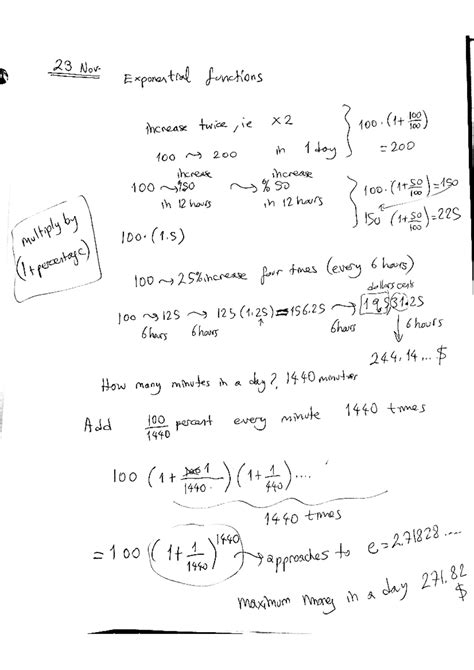 23 Nov.
Exponential functions
increase twice, ie ×2
100 ⇝ 200 in 1 day
100·(1+100/100)
=200
increase increase
100 ⇝ %50 ⇝ %50
in 12 hours in 12 hours
100·(1+50/100)=150
150 (1+50/100)=225
multiply by
(1+percentage)
100·(1.5)
100 ⇝ 25% increase four times (every 6 hours)
dollars cents
100 ⇝ 125 ⇝ 125(1.25)=156.25 ⇝ 195.31.25
6 hours 6 hours 6 hours 6 hours
244.14...$
How many minutes in a day?, 1440 minutes
Add 100/1440 percent every minute 1440 times
100 (1+1/1440)(1+1/440)....
1440 times
=100 (1+1/1440)^1440 ⇝ approaches to e=2.71828....
maximum money in a day 271.82
$